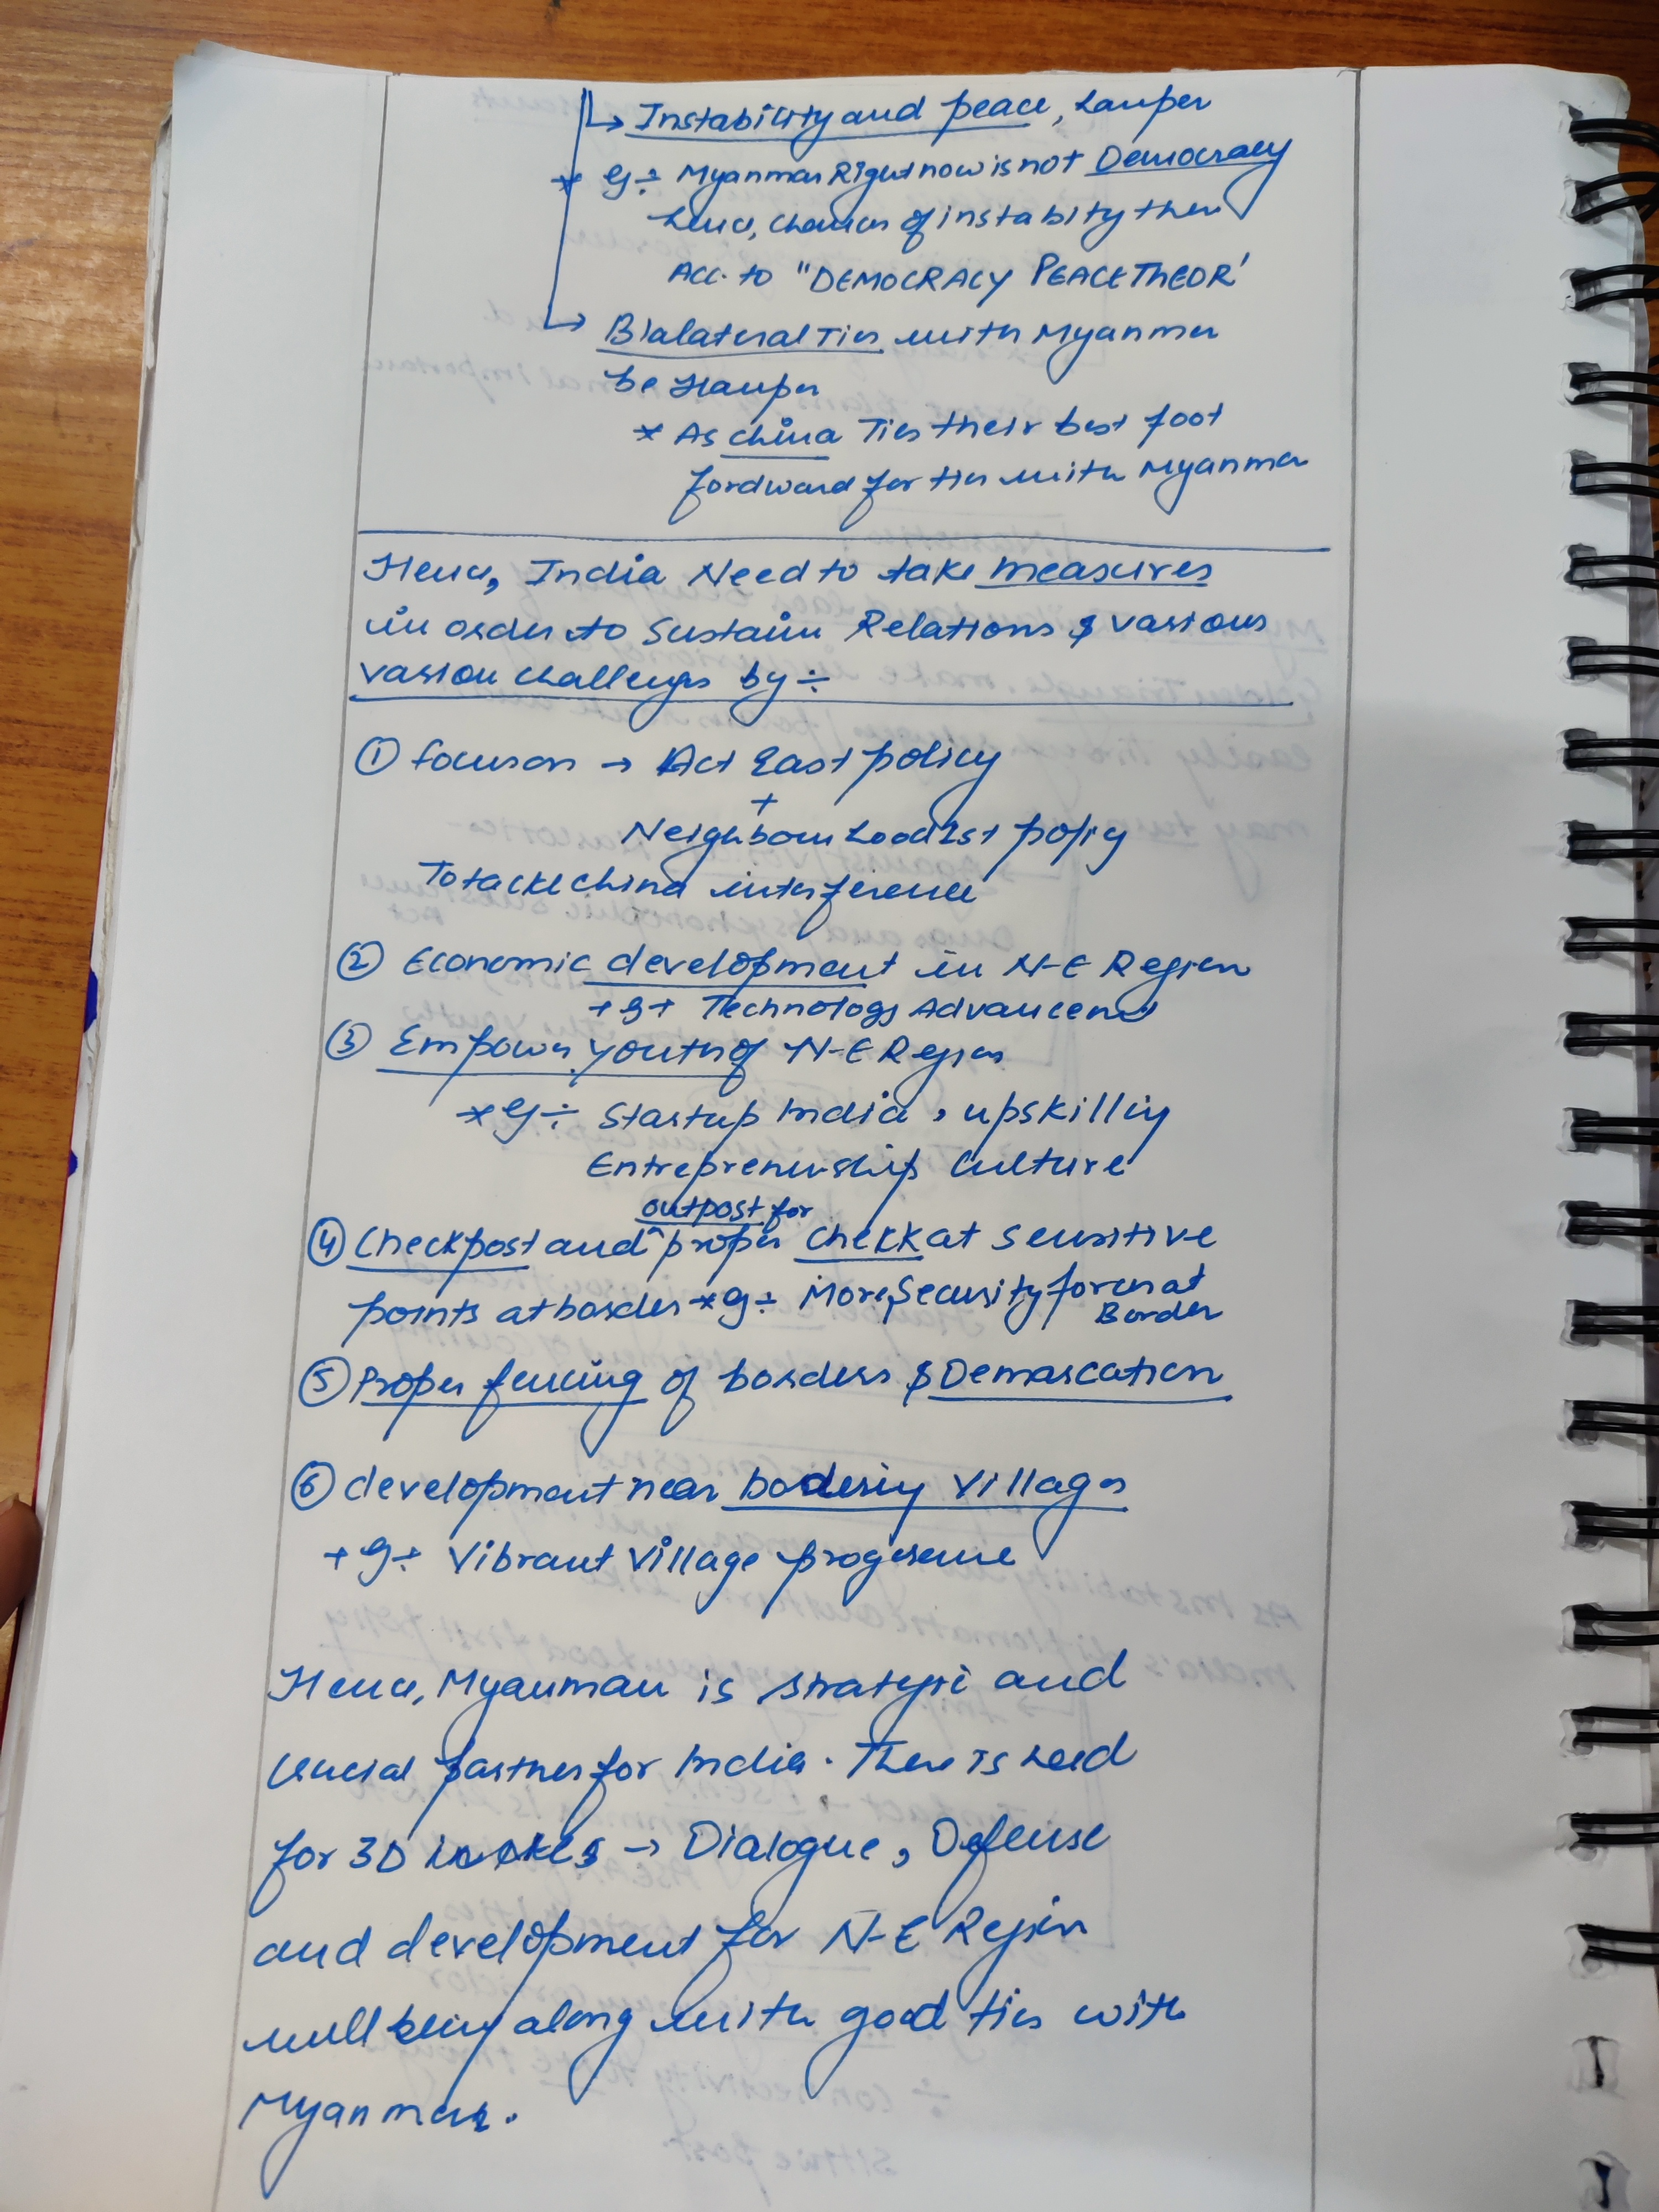 ↳ Instability and peace, hamper
* eg ÷ Myanmar Right now is not Democracy
hence, chances of instabity there
Acc. to "DEMOCRACY PEACE THEOR'
↳ Bialateral Ties with Myanmar
be Hamper
* As China Ties their best foot
fordward for ties with Myanmar
Hence, India Need to take measures
in order to sustain Relations & various
various challenges by ÷
① focus on → Act East policy
+
Neighbourhood 1st policy
To tackle China interference
② Economic development in N-E Region
* eg ÷ Technology Advancement
③ Empower youth of N-E Region
* eg ÷ Startup India, upskilling
Entrepreneurship Culture
outpost for
④ Checkpost and ^ proper chekk at sensitive
points at border * eg ÷ More Security forces at
Border
⑤ Proper fencing of borders & Demarcation
⑥ development near bordering villages
* eg ÷ Vibrant Village programme
Hence, Myanmar is strategic and
crucial partner for India. There is need
for 3D → Dialogue, Defense
and development for N-E Region
well being along with good ties with
Myanmar.